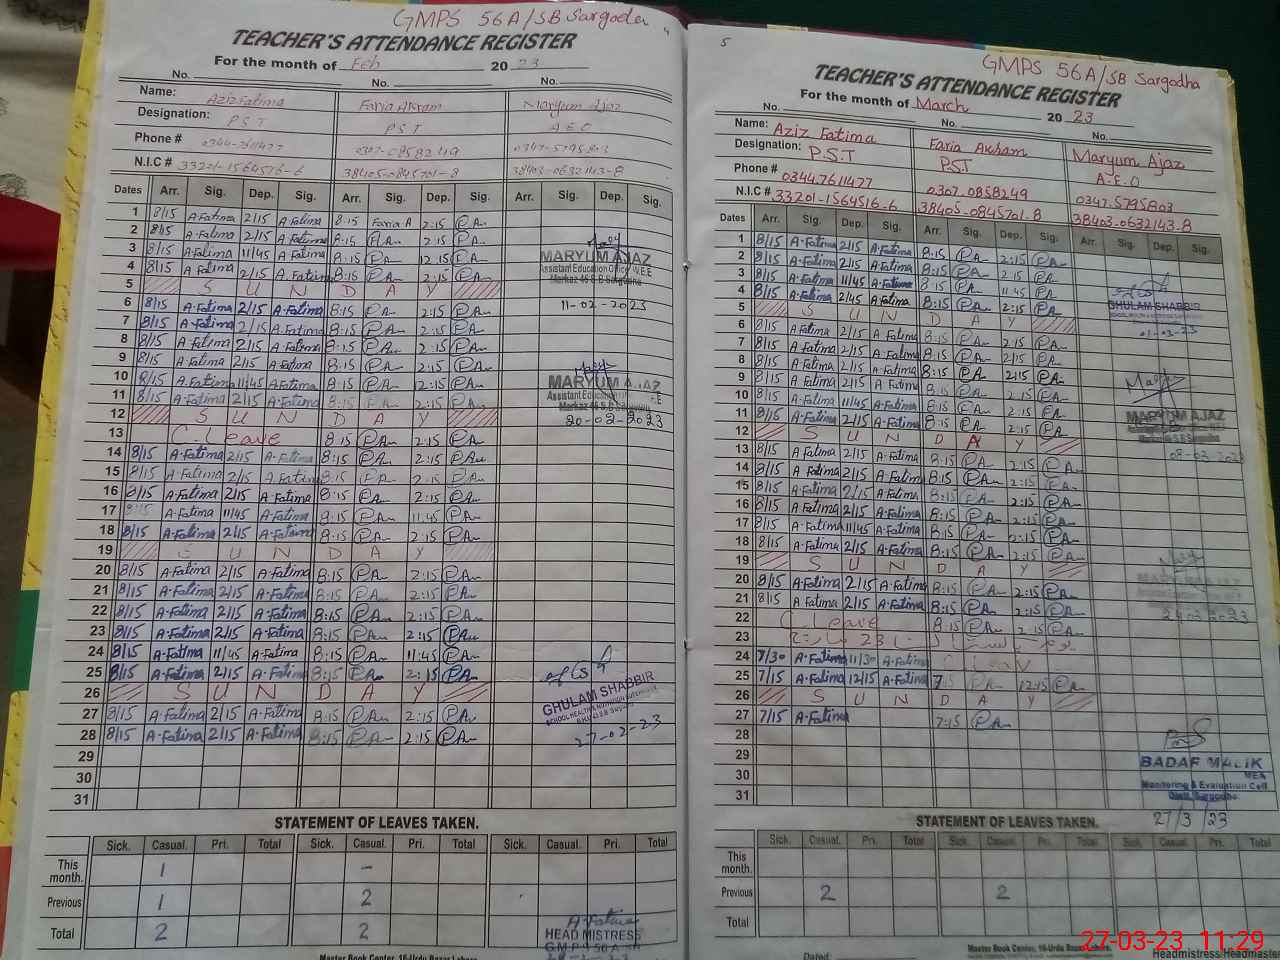 GMPS 56A/SB Sargodha
TEACHER'S ATTENDANCE REGISTER
For the month of Feb 2023
No. No. No.
Name: Aziz Fatima Faria Akram Maryum Ajaz
Designation: P S T P S T A E O
Phone # 0344-7611477
N.I.C # 33201-1564516-6 38405-0845701-8 38403-0632143-8
Dates Arr. Sig. Dep. Sig. Arr. Sig. Dep. Sig. Arr. Sig. Dep. Sig.
1 8/15 A.Fatima 2/15 A.Fatima 8:15 Faria A 2:15
2 8/15 A.Fatima 2/15 A.Fatima 8:15 2:15
3 8/15 A.Fatima 11/45 A.Fatima 8:15 12:15
4 8/15 A.Fatima 2/15 A.Fatima 8:15 2:15
5 S U N D A Y
6 8/15 A.Fatima 2/15 A.Fatima 8:15 2:15
7 8/15 A.Fatima 2/15 A.Fatima 8:15 2:15
8 8/15 A.Fatima 2/15 A.Fatima 8:15 2:15
9 8/15 A.Fatima 2/15 A.Fatima 8:15 2:15
10 8/15 A.Fatima 11/45 A.Fatima 8:15 12:15
11 8/15 A.Fatima 2/15 A.Fatima 8:15 2:15
12 S U N D A Y
13 C.Leave 8:15 2:15
14 8/15 A.Fatima 2/15 A.Fatima 8:15 2:15
15 8/15 A.Fatima 2/15 A.Fatima 8:15 2:15
16 8/15 A.Fatima 2/15 A.Fatima 8:15 2:15
17 8/15 A.Fatima 11/45 A.Fatima 8:15 11:45
18 8/15 A.Fatima 2/15 A.Fatima 8:15 2:15
19 S U N D A Y
20 8/15 A.Fatima 2/15 A.Fatima 8:15 2:15
21 8/15 A.Fatima 2/15 A.Fatima 8:15 2:15
22 8/15 A.Fatima 2/15 A.Fatima 8:15 2:15
23 8/15 A.Fatima 2/15 A.Fatima 8:15 2:15
24 8/15 A.Fatima 11/45 A.Fatima 8:15 11:45
25 8/15 A.Fatima 2/15 A.Fatima 8:15 2:15
26 S U N D A Y
27 8/15 A.Fatima 2/15 A.Fatima 8:15 2:15
28 8/15 A.Fatima 2/15 A.Fatima 8:15 2:15
29
30
31
MARYUM AJAZ
Assistant Education Officer W.E.E
Markaz 46 S.B Sargodha
11-02-2023
MARYUM AJAZ
Assistant Education
Markaz 46 S.B Sargodha
20-02-2023
GHULAM SHABBIR
27-02-23
STATEMENT OF LEAVES TAKEN.
Sick. Casual. Pri. Total Sick. Casual. Pri. Total Sick. Casual. Pri. Total
This month. 1 -
Previous 1 2
Total 2 2
A.Fatima
HEAD MISTRESS
Master Book Center, 16-Urdu Bazar Lahore
4
5
GMPS 56A/SB Sargodha
TEACHER'S ATTENDANCE REGISTER
For the month of March 2023
No. No. No.
Name: Aziz Fatima Faria Akram Maryum Ajaz
Designation: P.S.T P.S.T A.E.O
Phone # 0344.7611477 0307.0858249 0347.5795803
N.I.C # 33201-1564516-6 38405-0845701-8 38403-0632143-8
Dates Arr. Sig. Dep. Sig. Arr. Sig. Dep. Sig. Arr. Sig. Dep. Sig.
1 8/15 A.Fatima 2/15 A.Fatima 8:15 2:15
2 8/15 A.Fatima 2/15 A.Fatima 8:15 2:15
3 8/15 A.Fatima 11/45 A.Fatima 8:15 11:45
4 8/15 A.Fatima 2/45 A.Fatima 8:15 2:15
5 S U N D A Y
6 8/15 A.Fatima 2/15 A.Fatima 8:15 2:15
7 8/15 A.Fatima 2/15 A.Fatima 8:15 2:15
8 8/15 A.Fatima 2/15 A.Fatima 8:15 2:15
9 8/15 A.Fatima 2/15 A.Fatima 8:15 2:15
10 8/15 A.Fatima 11/45 A.Fatima 8:15
11 8/15 A.Fatima 2/15 A.Fatima 8:15 2:15
12 S U N D A Y
13 8/15 A.Fatima 2/15 A.Fatima 8:15 2:15
14 8/15 A.Fatima 2/15 A.Fatima 8:15 2:15
15 8/15 A.Fatima 2/15 A.Fatima 8:15 2:15
16 8/15 A.Fatima 2/15 A.Fatima 8:15 2:15
17 8/15 A.Fatima 11/45 A.Fatima 8:15 2:15
18 8/15 A.Fatima 2/15 A.Fatima 8:15 2:15
19 S U N D A Y
20 8/15 A.Fatima 2/15 A.Fatima 8:15 2:15
21 8/15 A.Fatima 2/15 A.Fatima 8:15 2:15
22 C.Leave 8:15 2:15
23 یوم پاکستان 23 مارچ
24 7/30 A.Fatima 11/30 A.Fatima C Leav
25 7/15 A.Fatima 12/15 A.Fatima 12:15
26 S U N D A Y
27 7/15 A.Fatima 7:15
28
29
30
31
GHULAM SHABBIR
MARYUM AJAZ
MARYUM AJAZ
BADAF MALIK
MEA
Monitoring & Evaluation Cell
Distt. Sargodha
27/3/23
STATEMENT OF LEAVES TAKEN.
Sick. Casual. Pri. Total Sick. Casual. Pri. Total Sick. Casual. Pri. Total
This month.
Previous 2 2
Total
Master Book Center, 16-Urdu Bazar Lahore
Dated: Headmistress/Headmaster
27-03-23 11:29